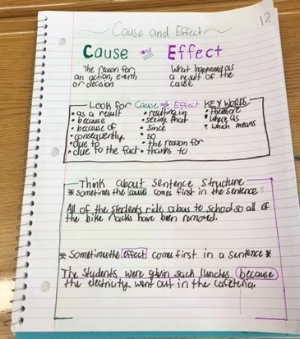 Cause and Effect
12
Cause Effect
The reason for an action, event or decision
What happened as a result of the cause
Look for Cause Effect KEY WORDS
as a result
because
because of
consequently
due to
due to the fact
resulting in
seeing that
since
so
the reason for
thanks to
therefore
where as
which means
Think about Sentence Structure
*Sometimes the cause comes first in the sentence.
All of the students ride a bus to school so all of
the bike racks have been removed.
*Sometimes the effect comes first in a sentence*
The students were givin sack lunches because
the electricity went out in the cafeteria.